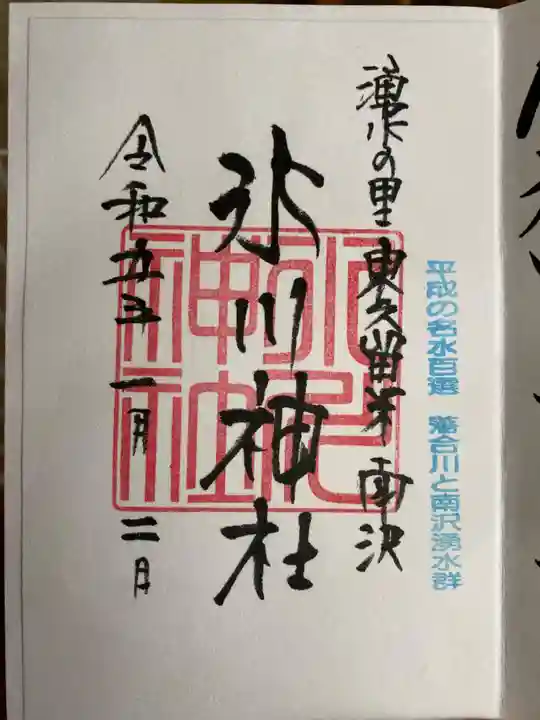 平成の名水百選 落合川と南沢湧水群
湧水の里 東久留米 南沢
氷川神社
令和五年 一月 二日
氷川
神社